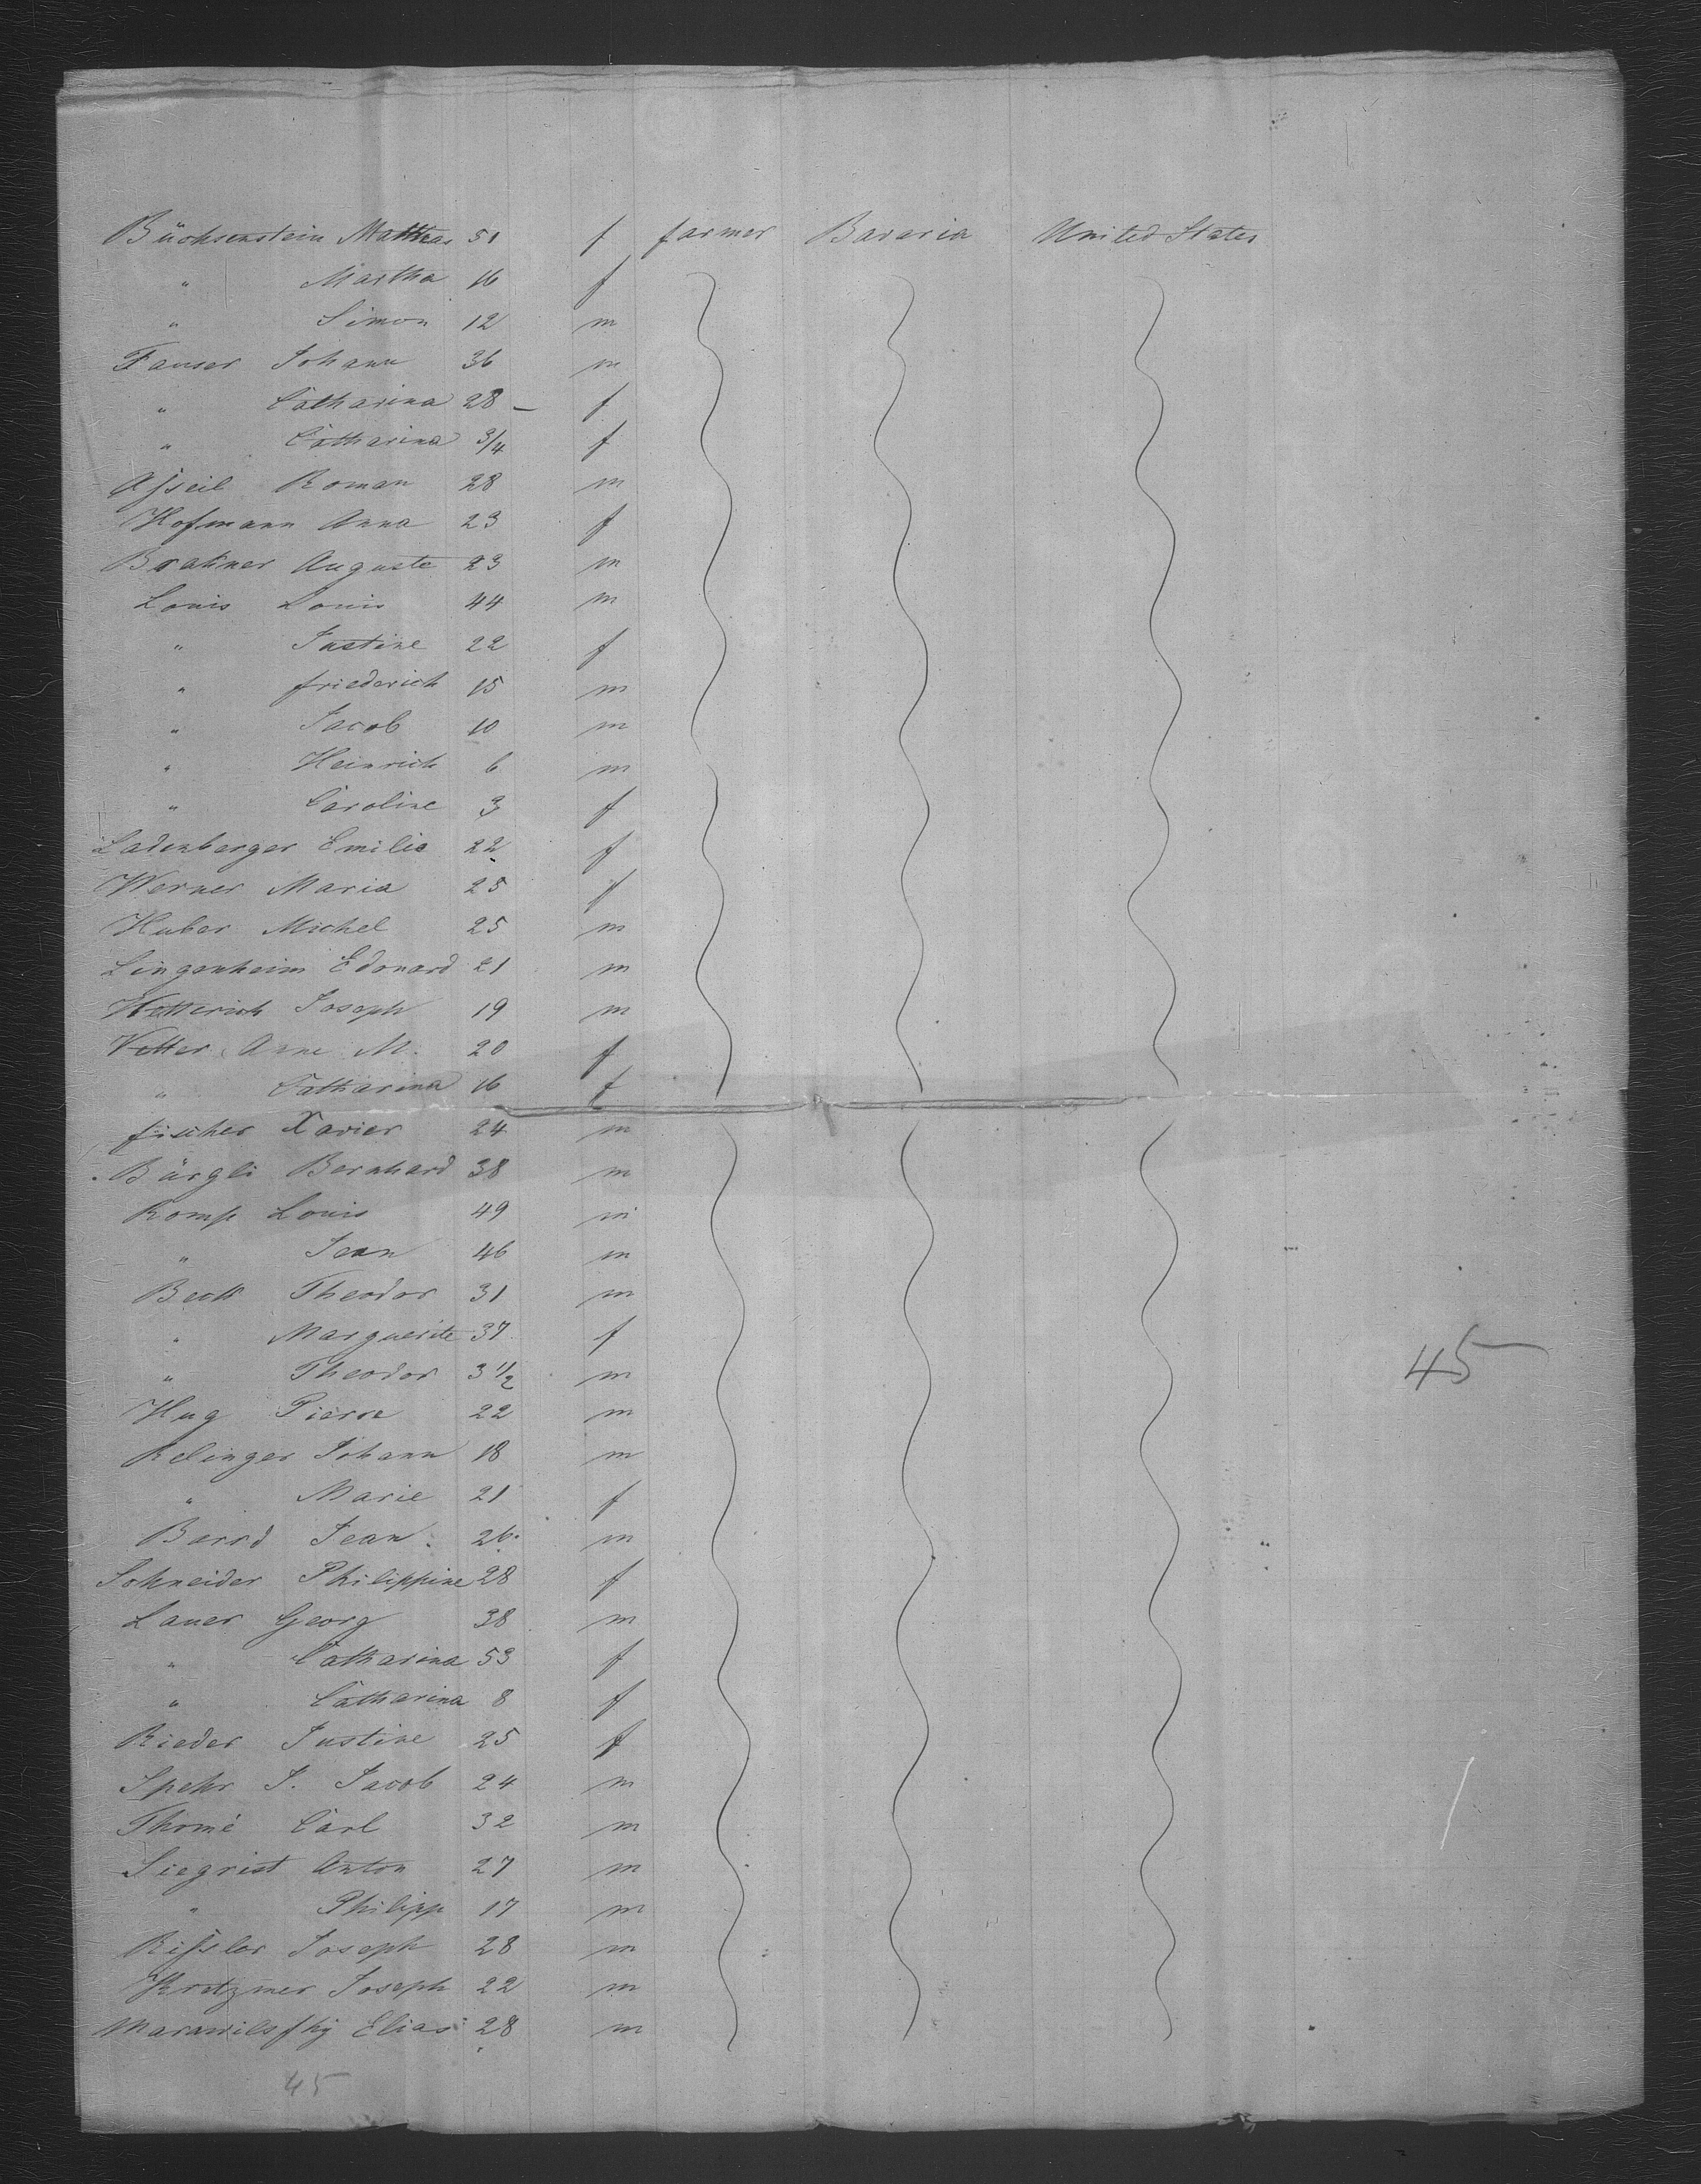 Büchsenstein Matthias 51 f farmer Bavaria United States
" Martha 16 f
" Simon 12 m
Fauser Johann 36 m
" Catharina 28 – f
" Catharina 3/4 f
Asseil Roman 28 m
Hofmann Anna 23 f
Brahner Auguste 23 m
Louis Louis 44 m
" Justine 22 f
" friederich 15 m
" Jacob 10 m
" Heinrich 6 m
" Caroline 3 f
Ladenberger Emilie 22 f
Werner Maria 25 f
Huber Michel 25 m
Lingenheim Edouard 21 m
Hetterich Joseph 19 m
Vetter Anne M. 20 f
" Catharina 16 f
fischer Xavier 24 m
Bürgli Bernhard 38 m
Romp Louis 49 m
" Jean 46 m
Beck Theodor 31 m
" Marguerite 37 f
" Theodor 3 1/2 m
Hug Pierre 22 m
Relinger Johann 18 m
" Marie 21 f
Barrd Jean 26 m
Schneider Philippine 28 f
Lauer Georg 38 m
" Catharina 53 f
" Catharina 8 f
Rieder Justine 25 f
Spehr J. Jacob 24 m
Thomé Carl 32 m
Siegrist Anton 27 m
" Philipp 17 m
Rissler Joseph 28 m
Kratzmer Joseph 22 m
Elias 28 m
45
45